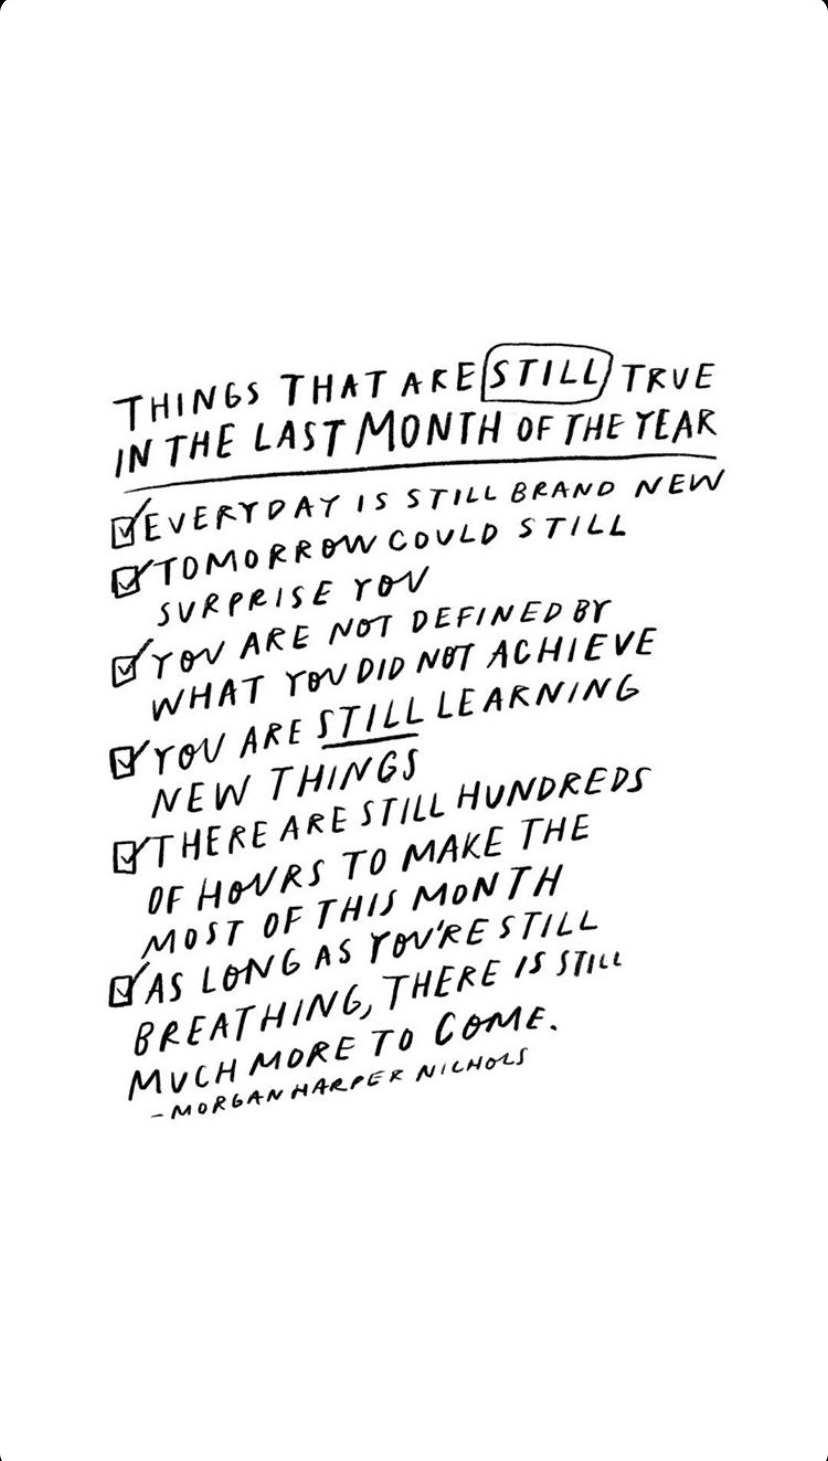 THINGS THAT ARE STILL TRUE
IN THE LAST MONTH OF THE YEAR
EVERYDAY IS STILL BRAND NEW
TOMORROW COULD STILL
SURPRISE YOU
YOU ARE NOT DEFINED BY
WHAT YOU DID NOT ACHIEVE
YOU ARE STILL LEARNING
NEW THINGS
THERE ARE STILL HUNDREDS
OF HOURS TO MAKE THE
MOST OF THIS MONTH
AS LONG AS YOU'RE STILL
BREATHING, THERE IS STILL
MUCH MORE TO COME.
-MORGAN HARPER NICHOLS